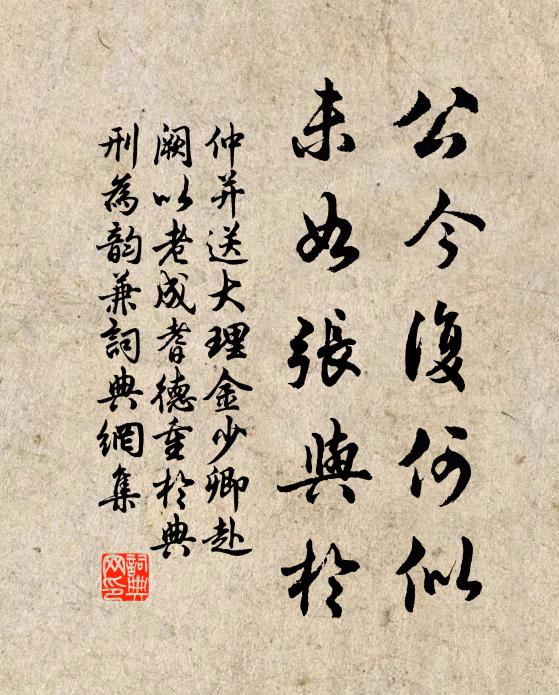 公今復何似
未如張與於
仲并送大理金少卿赴
闕以老成耆德重於典
刑為韵兼詞典網集
詞典
网印